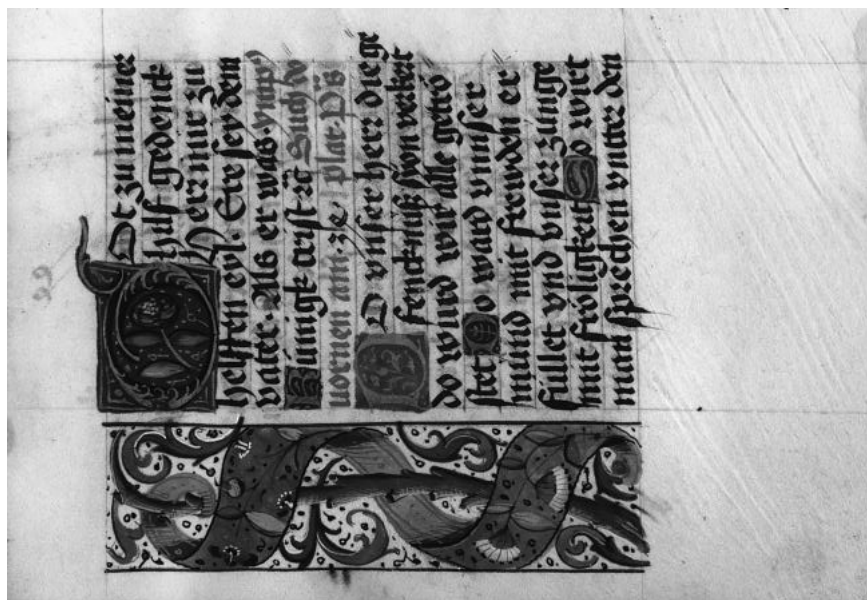 Ot zu meiner
hilf gedenck
Herr mir zu
helffen eyl. Ere sey dem
vater. Als er was. ymp̄
künigk crist rc̄ Such do
uornen am. ze plat. Ps̄
O vnser herr die ge
fencknuß syon verkert
do wurd wir alle getrö
stet Do ward vnnser
mund mit frewden er
füllet vnd vnser zunge
mit fröligkeit So wirt
man sprechen vntter den